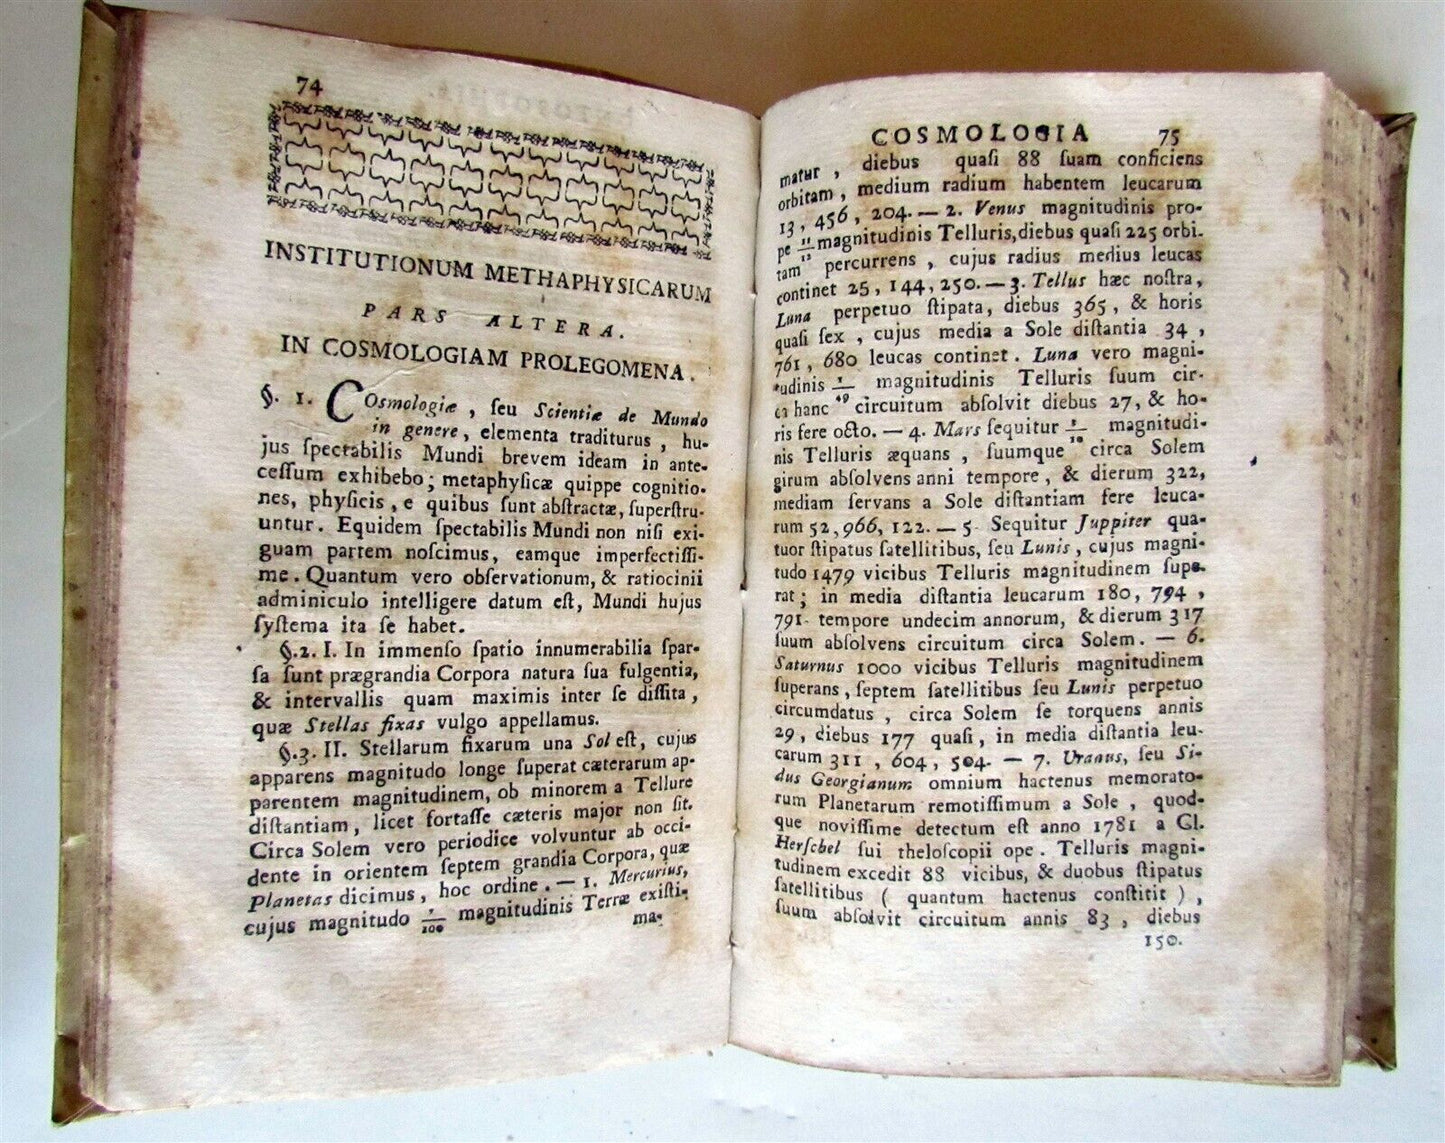 74
INSTITUTIONUM METHAPHYSICARUM
PARS ALTERA.
IN COSMOLOGIAM PROLEGOMENA.
§. 1. COsmologiæ, ſeu Scientiæ de Mundo
in genere, elementa traditurus, hu-
jus ſpectabilis Mundi brevem ideam in ante-
ceſſum exhibebo; metaphyſicæ quippe cognitio-
nes, phyſicis, e quibus ſunt abſtractæ, ſuperſtru-
untur. Equidem ſpectabilis Mundi non niſi exi-
guam partem noſcimus, eamque imperfectiſſi-
me. Quantum vero obſervationum, & ratiocinii
adminiculo intelligere datum eſt, Mundi hujus
ſyſtema ita ſe habet.
§.2. I. In immenſo ſpatio innumerabilia ſpar-
ſa ſunt prægrandia Corpora natura ſua fulgentia,
& intervallis quam maximis inter ſe diſſita,
quæ Stellas fixas vulgo appellamus.
§.3. II. Stellarum fixarum una Sol eſt, cujus
apparens magnitudo longe ſuperat cæterarum ap-
parentem magnitudinem, ob minorem a Tellure
diſtantiam, licet fortaſſe cæteris major non ſit.
Circa Solem vero periodice volvuntur ab occi-
dente in orientem ſeptem grandia Corpora, quæ
Planetas dicimus, hoc ordine. — 1. Mercurius,
cujus magnitudo 7/100 magnitudinis Terræ exiſti-
ma-
COSMOLOGIA 75
matur, diebus quaſi 88 ſuam conficiens
orbitam, medium radium habentem leucarum
13, 456, 204. — 2. Venus magnitudinis pro-
pe 11/12 magnitudinis Telluris, diebus quaſi 225 orbi-
tam percurrens, cujus radius medius leucas
continet 25, 144, 250. — 3. Tellus hæc noſtra,
Luna perpetuo ſtipata, diebus 365, & horis
quaſi ſex, cujus media a Sole diſtantia 34,
761, 680 leucas continet. Luna vero magni-
tudinis 1/49 magnitudinis Telluris ſuum cir-
ca hanc circuitum abſolvit diebus 27, & ho-
ris fere octo. — 4. Mars ſequitur /10 magnitudi-
nis Telluris æquans, ſuumque circa Solem
girum abſolvens anni tempore, & dierum 322,
mediam ſervans a Sole diſtantiam fere leuca-
rum 52, 966, 122. — 5. Sequitur Juppiter qua-
tuor ſtipatus ſatellitibus, ſeu Lunis, cujus magni-
tudo 1479 vicibus Telluris magnitudinem ſupe-
rat; in media diſtantia leucarum 180, 794,
791. tempore undecim annorum, & dierum 317
ſuum abſolvens circuitum circa Solem. — 6.
Saturnus 1000 vicibus Telluris magnitudinem
ſuperans, ſeptem ſatellitibus ſeu Lunis perpetuo
circumdatus, circa Solem ſe torquens annis
29, diebus 177 quaſi, in media diſtantia leu-
carum 311, 604, 504. — 7. Uranus, ſeu Si-
dus Georgianum omnium hactenus memorato-
rum Planetarum remotiſſimum a Sole, quod-
que noviſſime detectum eſt anno 1781 a Cl.
Herſchel ſui theloſcopii ope. Telluris magni-
tudinem excedit 88 vicibus, & duobus ſtipatus
ſatellitibus ( quantum hactenus conſtitit ),
ſuum abſolvit circuitum annis 83, diebus
150.